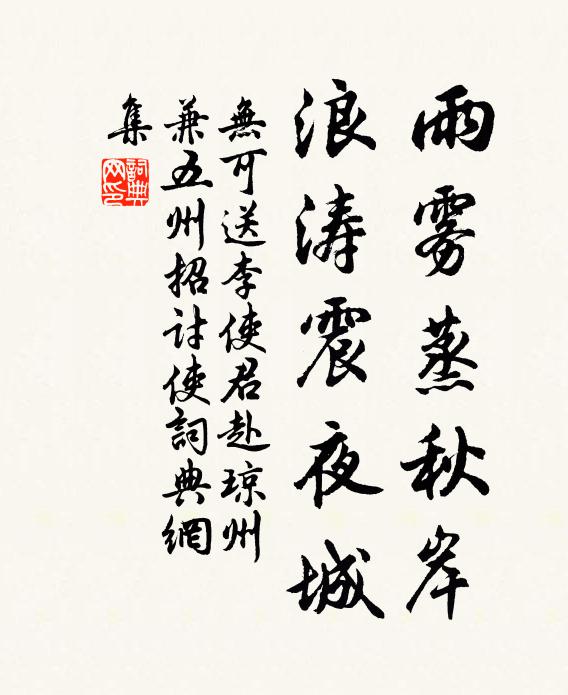 雨雾蒸秋岸
浪涛震夜城
無可送李使君赴琼州
兼五州招討使詞典網
集
詞典
网印